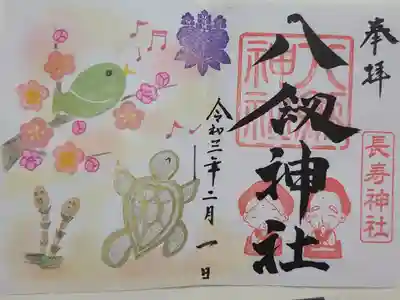 奉拝
八剱神社
八剱神社
長寿神社
令和三年二月一日